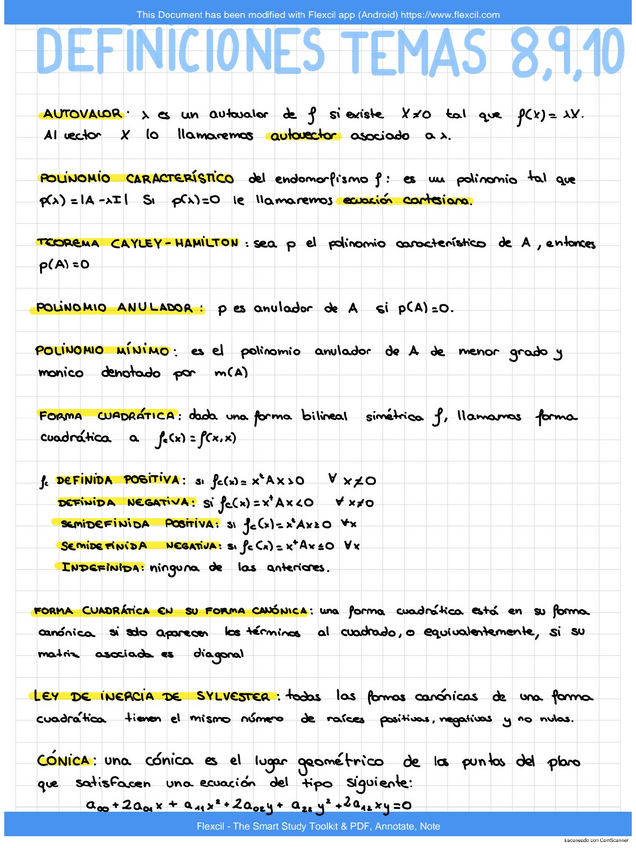 This Document has been modified with Flexcil app (Android) https://www.flexcil.com
DEFINICIONES TEMAS 8,9,10
AUTOVALOR: λ es un autovalor de f si existe X≠0 tal que f(x)=λX.
Al vector X lo llamaremos autovector asociado a λ.
POLINOMIO CARACTERÍSTICO del endomorfismo f: es un polinomio tal que
p(λ)=|A-λI| Si p(λ)=0 le llamaremos ecuación cartesiana.
TEOREMA CAYLEY-HAMILTON: sea p el polinomio característico de A, entonces
p(A)=0
POLINOMIO ANULADOR: p es anulador de A si p(A)=0.
POLINOMIO MÍNIMO: es el polinomio anulador de A de menor grado y
monico denotado por m(A)
FORMA CUADRÁTICA: dada una forma bilineal simétrica f, llamamos forma
cuadrática a fc(x)=f(x,x)
fc DEFINIDA POSITIVA: si fc(x)=xᵗAx>0 ∀ x≠0
DEFINIDA NEGATIVA: si fc(x)=xᵗAx<0 ∀ x≠0
SEMIDEFINIDA POSITIVA: si fc(x)=xᵗAx≥0 ∀x
SEMIDEFINIDA NEGATIVA: si fc(x)=xᵗAx≤0 ∀x
INDEFINIDA: ninguna de las anteriores.
FORMA CUADRÁTICA EN SU FORMA CANÓNICA: una forma cuadrática está en su forma
canónica si solo aparecen los términos al cuadrado, o equivalentemente, si su
matriz asociada es diagonal
LEY DE INERCIA DE SYLVESTER: todas las formas canónicas de una forma
cuadrática tienen el mismo número de raíces positivas, negativas y no nulas.
CÓNICA: una cónica es el lugar geométrico de los puntos del plano
que satisfacen una ecuación del tipo siguiente:
a₀₀+2a₀₁x+a₁₁x²+2a₀₂y+a₂₂y²+2a₁₂xy=0
Flexcil - The Smart Study Toolkit & PDF, Annotate, Note
Escaneado con CamScanner